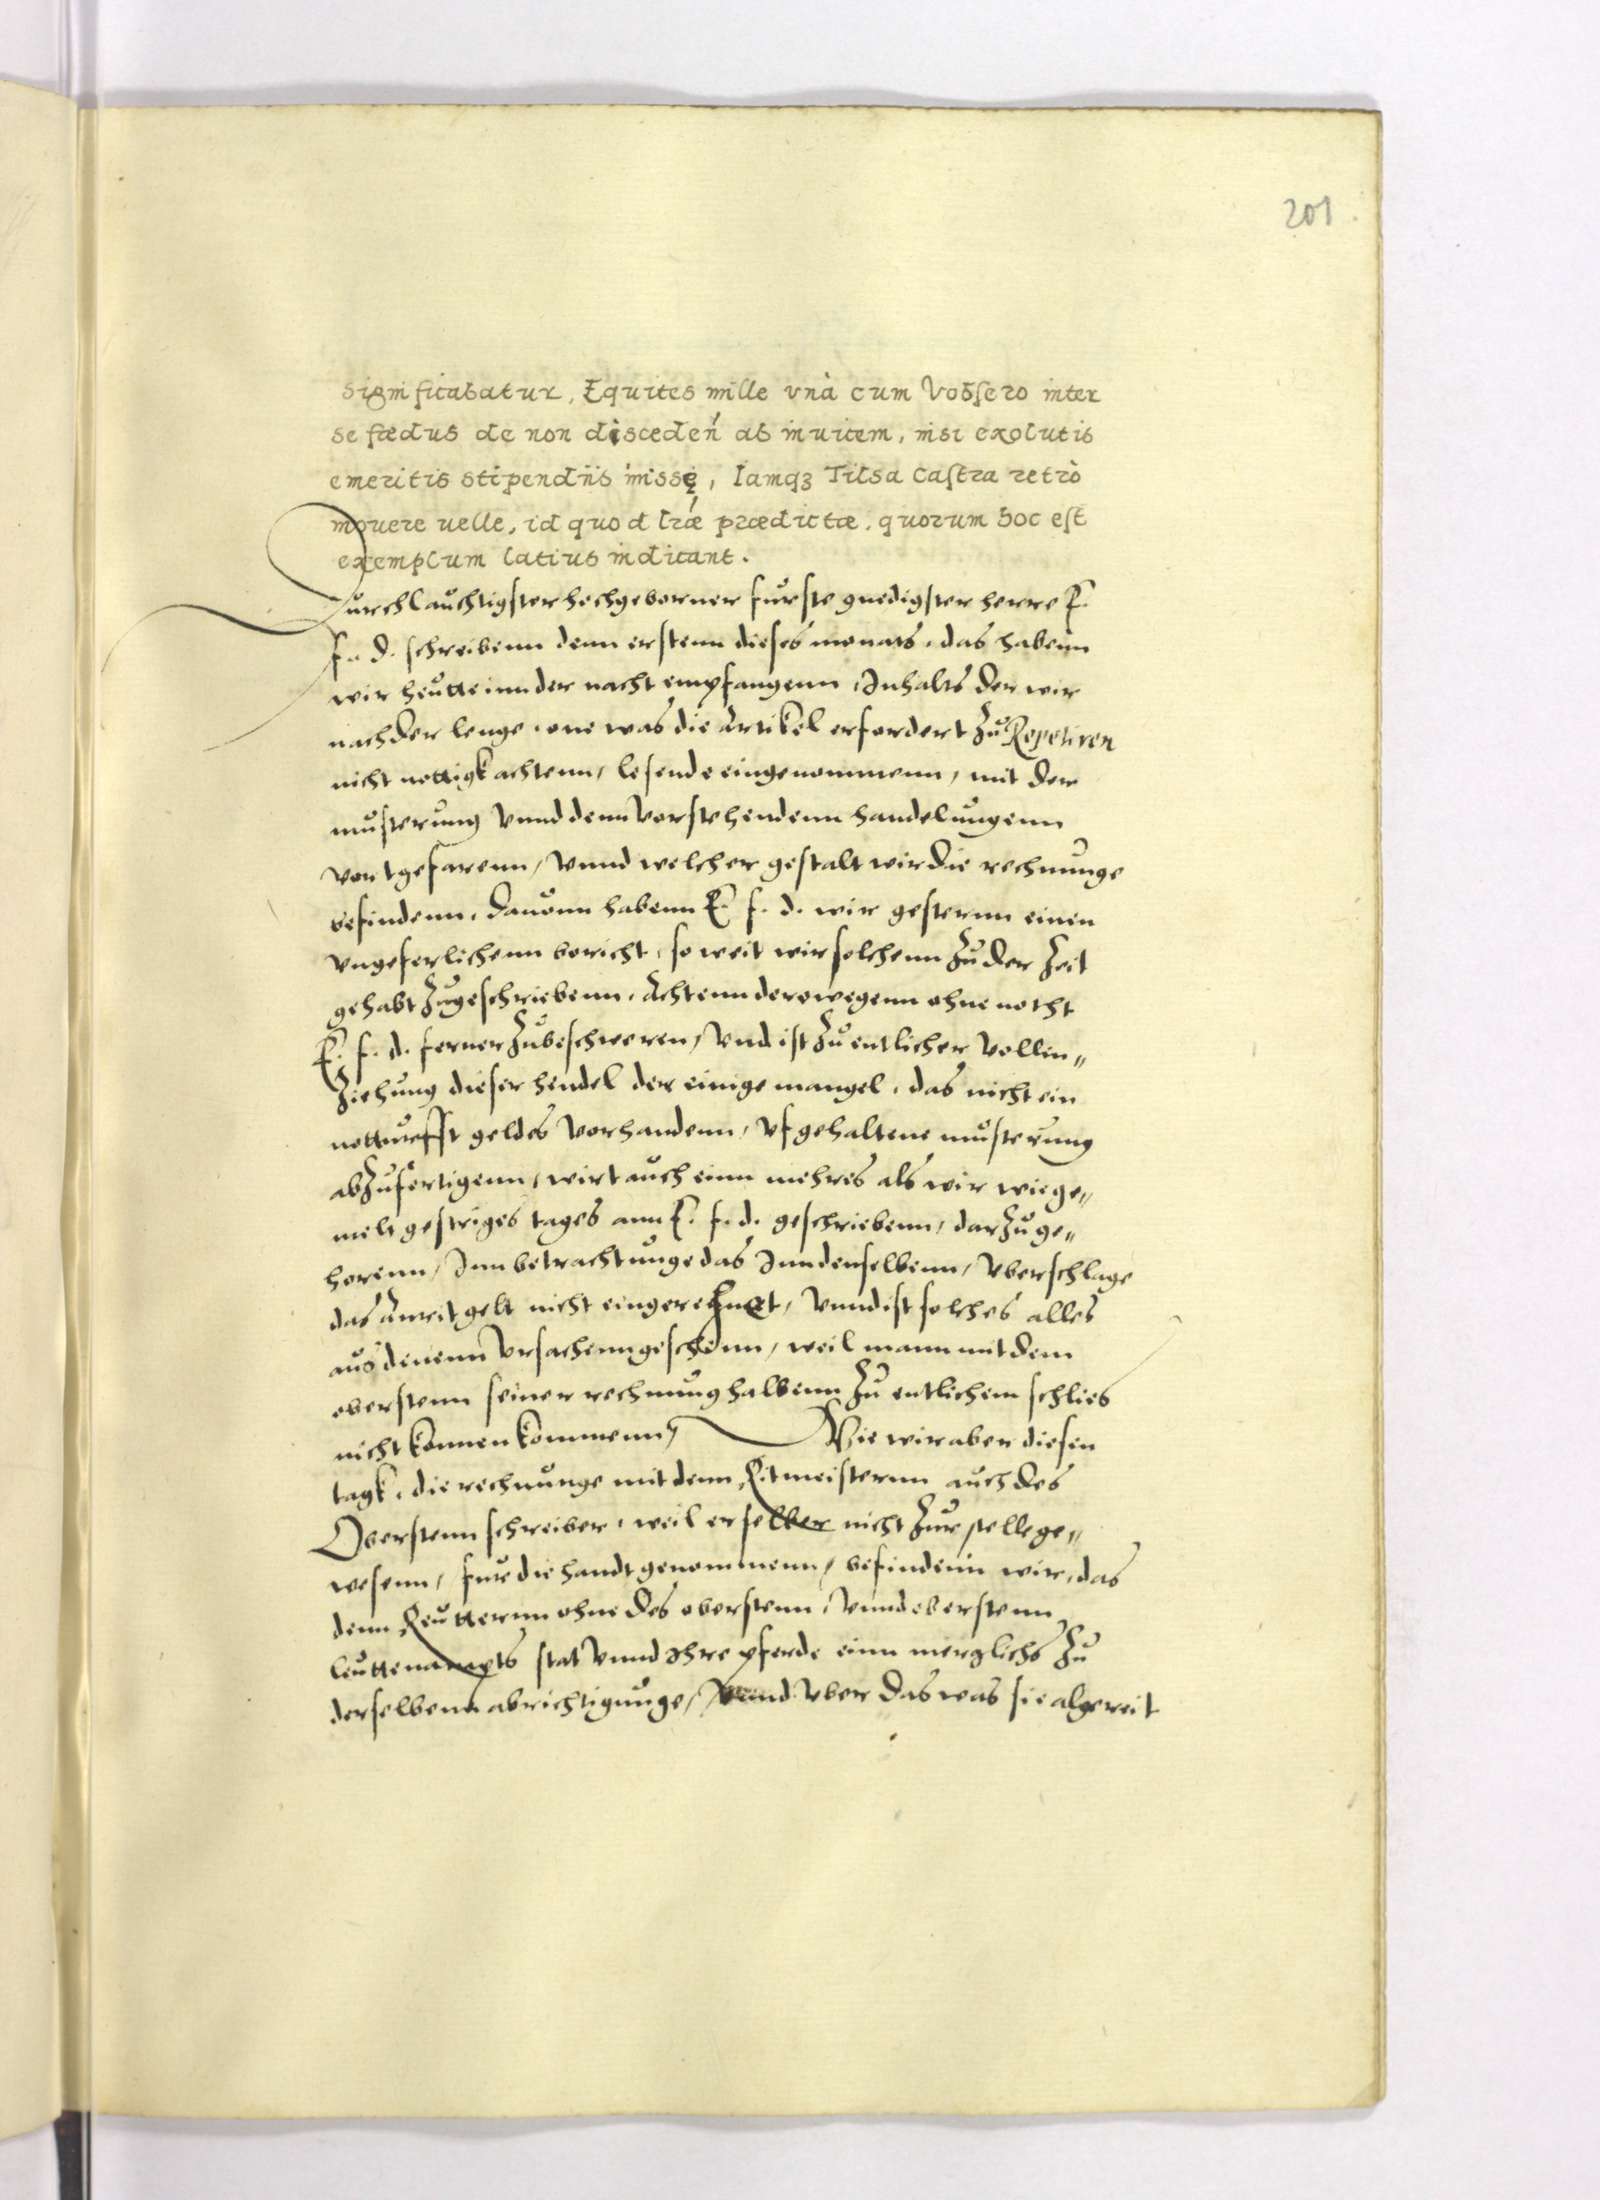 201
significabatur, Equites mille vnà cum Vobsero inter
se fædus de non disceden̄ ab inuicem, nisi exolutis
emeritis stipendiis inissę, Iamqꝫ Tilsa Castra retrò
mouere uelle, id quod lræ prædictæ, quorum hoc est
exemplum latius indicant.
Durchlauchtigster hochgeborner furste gnedigster herre E.
f. d. schreibenn denn erstenn dieses monats, das habenn
wir heutte inn der nacht empfangenn, Inhalts der wir
nach der lenge, one was die artikel erfordert zu Repetiren
nicht nottigk achtenn, lesende eingenommenn, mit der
musterung vnnd denn vorstehendenn handelungenn
vortgefarenn, vnnd welcher gestalt wir die rechnunge
befindenn, dauonn habenn E. f. d. wir gesternn einen
vngeferlichenn bericht, so weit wir solchenn zu der zeit
gehabt zugeschriebenn, Achtenn derowegenn ohne notht
E. f. d. ferner zubeschweren, vnd ist zu entlicher vollin„
ziehung dieser hendel der einige mangel, das nicht ein
notturfft geldes vorhandenn, vf gehaltene musterung
abzufertigenn, wirt auch einn mehres als wir wie ge„
melt gestriges tages ann E. f. d. geschriebenn, darzu ge„
horenn, Inn betrachtunge das Inn denselbenn, vberschlage
das Anreit gelt nicht eingerechnet, vnnd ist solches alles
aus denenn vrsachenn geschenn, weil mann mit dem
oberstenn seiner rechnung halbenn zu entlichem schlies
nicht konnen kommenn, Wie wir aber diesen
tagk, die rechnunge mit denn Ritmeisternn auch des
Oberstenn schreiber, weil er selber nicht zur stelle ge„
wesenn, fur die handt genommenn, befindenn wir, das
denn Reutternn ohne des oberstenn, vnnd oberstenn
leuttenampts stat vnnd Ihre pferde einn merglichs zu
derselbenn abrichtigunge, vnnd vber das was sie algereit